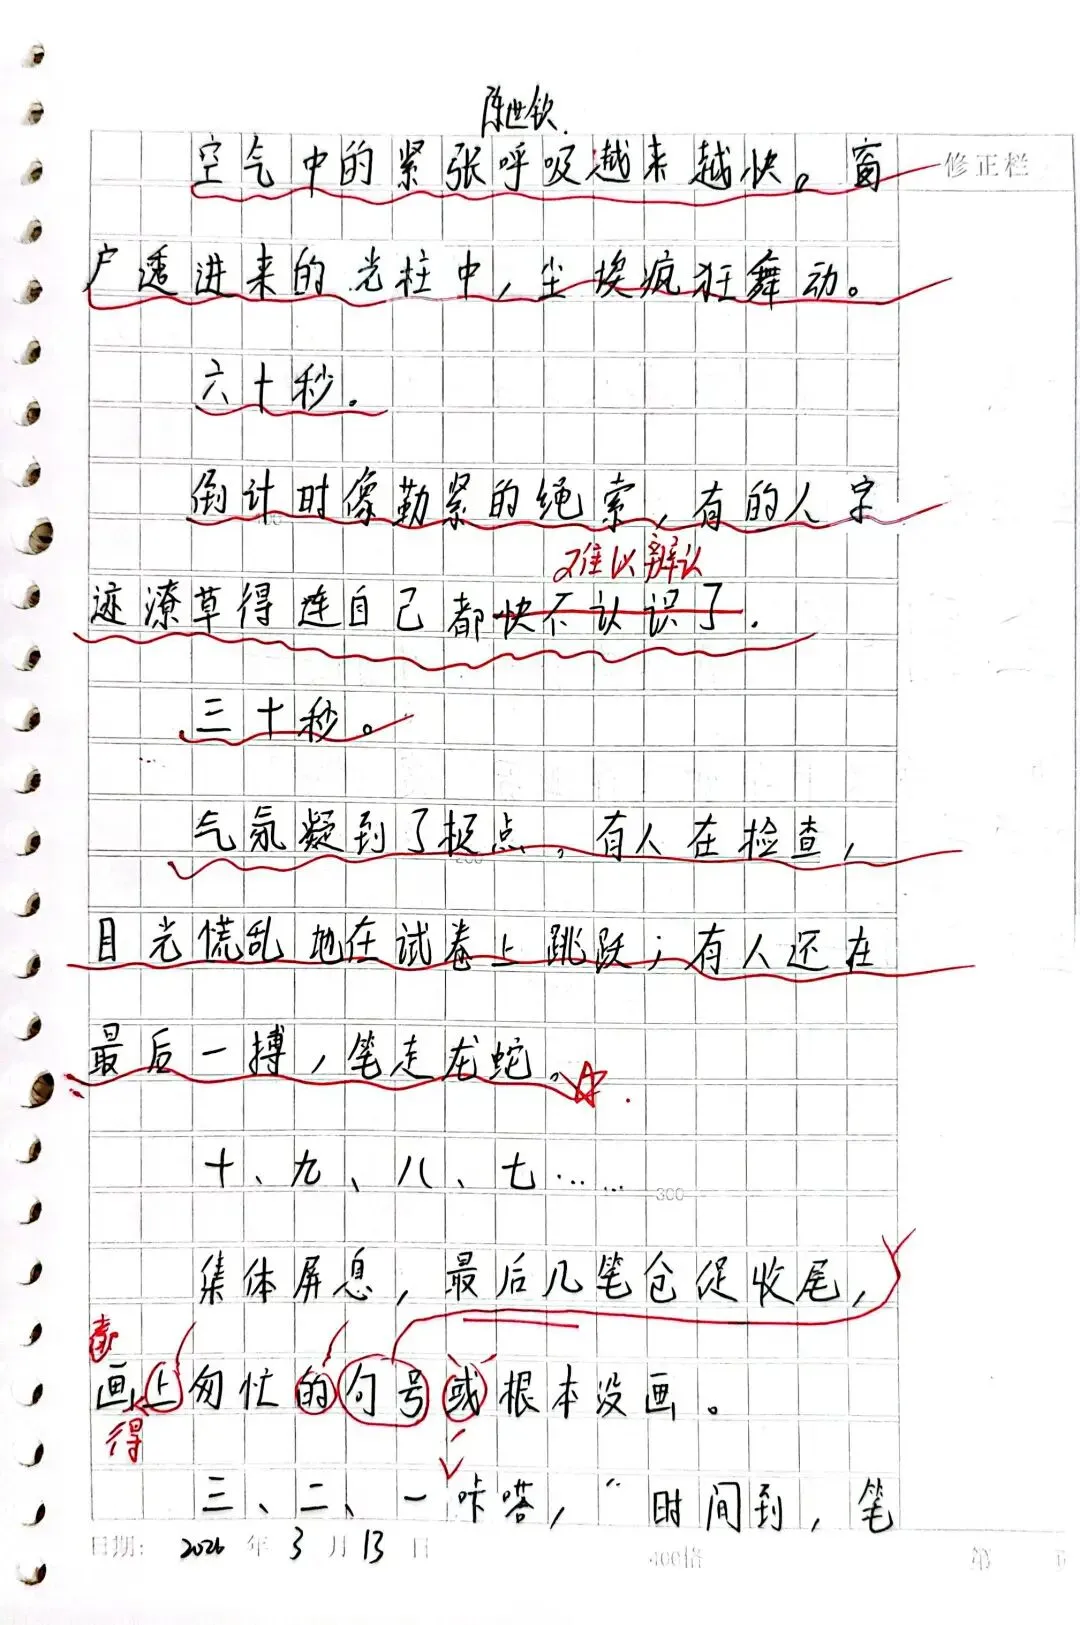 陈世钦
空气中的紧张呼吸越来越快。窗
修正栏
户透进来的光柱中，尘埃疯狂舞动。
六十秒.
倒计时像勒紧的绳索，有的人字
难以辨认
迹潦草得连自己都快不认识了.
三十秒。
气氛凝到了极点，有人在检查，
200
目光慌乱地在试卷上跳跃；有人还在
最后一搏，笔走龙蛇。
十、九、八、七……
300
集体屏息，最后几笔仓促收尾，
画上匆忙的句号或根本没画。
得
三、二、一咔嗒，“时间到，笔
日期： 2026 年 3 月 13 日
400格
第